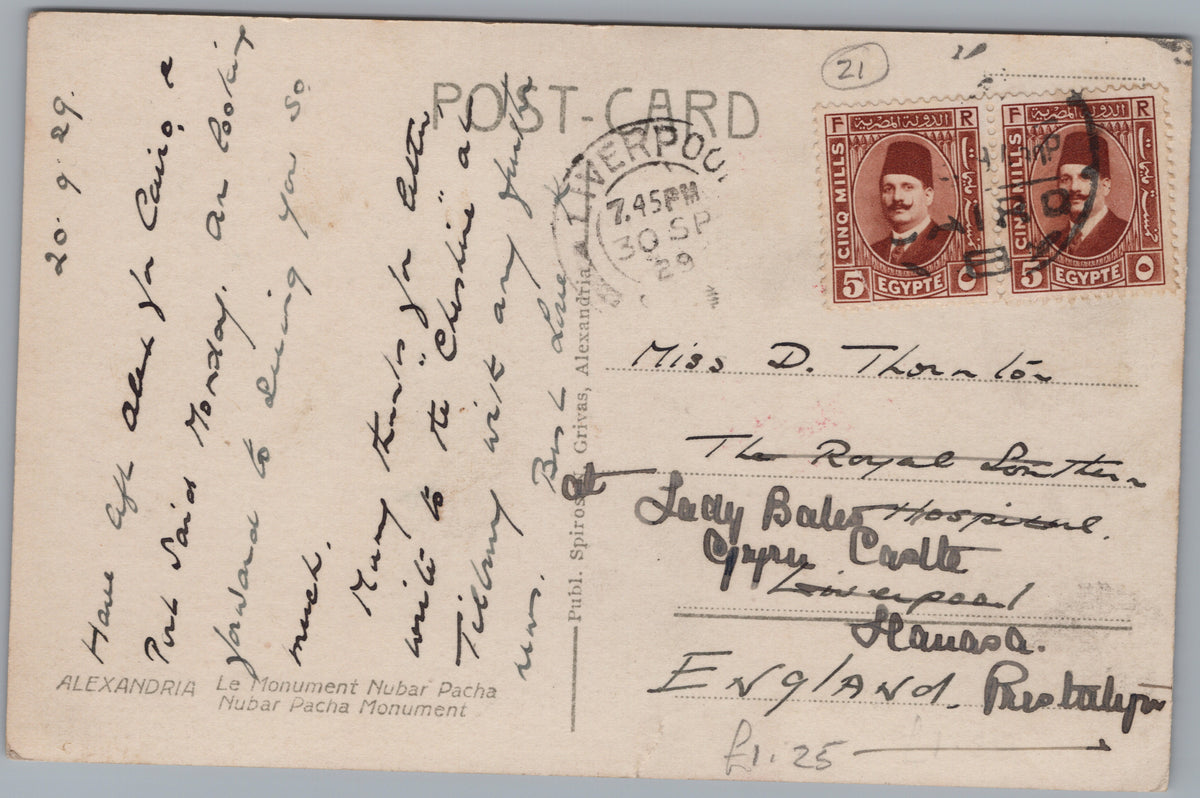 POST-CARD
21
20.9.29.
Have left Alex for Cairo, a
Port Said Monday. Am looking
forward to seeing you so
much.
Many thanks for letter
write to the "Cheshire" at
Tilbury with any further
news.
Best Love
LIVERPOOL
7.45PM
30 SP
29
F R
الدولة المصرية
CINQ MILLS
5
EGYPTE
٥
F R
الدولة المصرية
CINQ MILLS
5
EGYPTE
٥
Miss D. Thornton
The Royal Southern
Hospital.
Liverpool
at
Lady Bates
Gyrn Castle
Llanasa.
ENGLAND. Prestatyn
£1.25
Publ. Spiros Grivas, Alexandria
ALEXANDRIA Le Monument Nubar Pacha
Nubar Pacha Monument